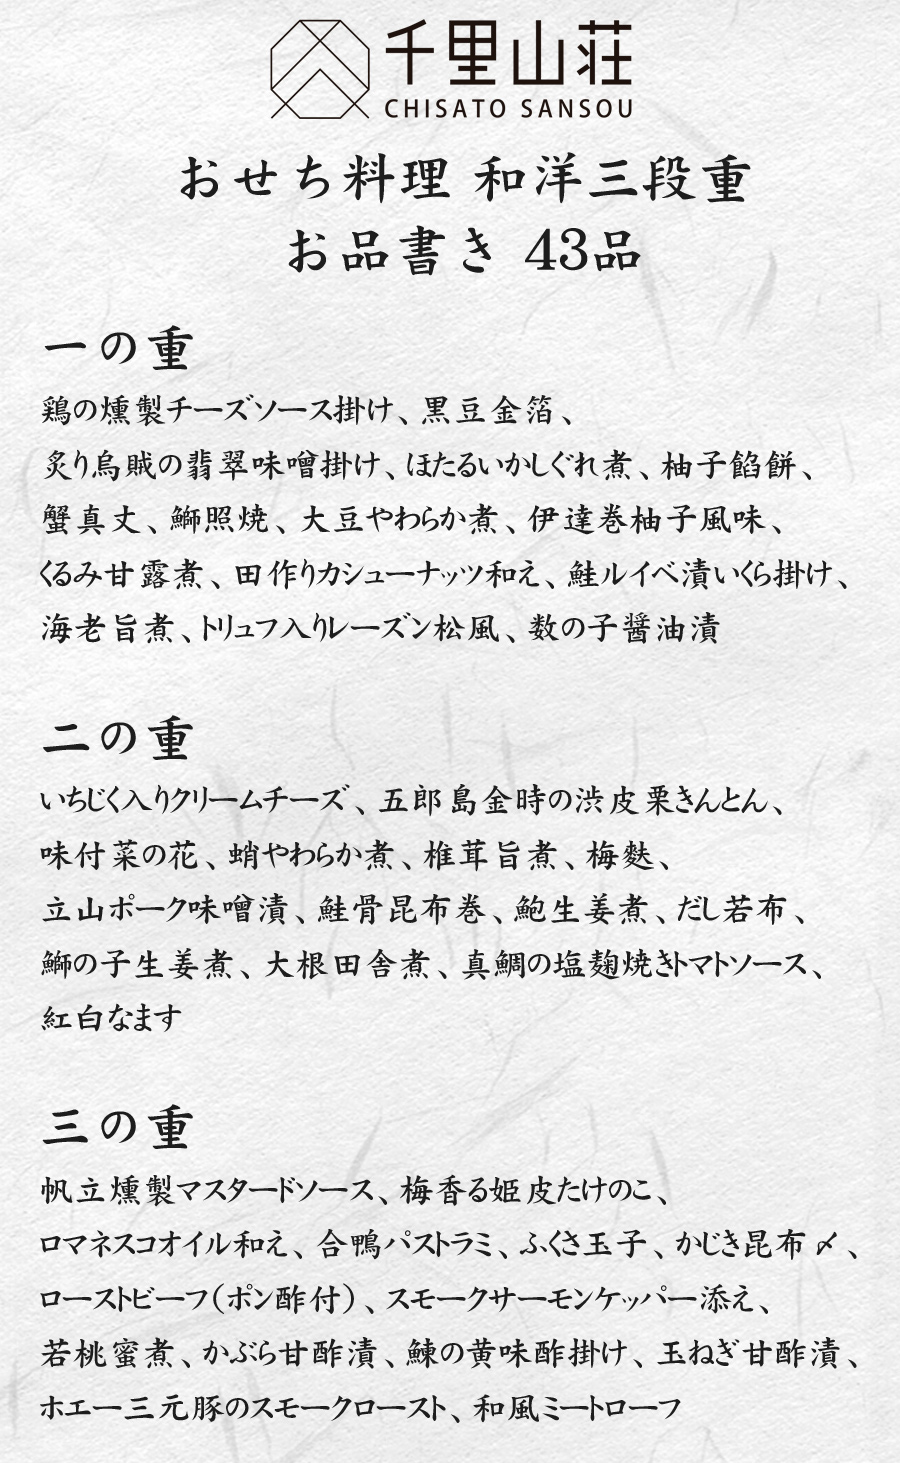 千里山荘
CHISATO SANSOU
おせち料理 和洋三段重
お品書き 43品
一の重
鶏の燻製チーズソース掛け、黒豆金箔、
炙り烏賊の翡翠味噌掛け、ほたるいかしぐれ煮、柚子餡餅、
蟹真丈、鰤照焼、大豆やわらか煮、伊達巻柚子風味、
くるみ甘露煮、田作りカシューナッツ和え、鮭ルイベ漬いくら掛け、
海老旨煮、トリュフ入りレーズン松風、数の子醤油漬
二の重
いちじく入りクリームチーズ、五郎島金時の渋皮栗きんとん、
味付菜の花、蛸やわらか煮、椎茸旨煮、梅麩、
立山ポーク味噌漬、鮭骨昆布巻、鮑生姜煮、だし若布、
鰤の子生姜煮、大根田舎煮、真鯛の塩麹焼きトマトソース、
紅白なます
三の重
帆立燻製マスタードソース、梅香る姫皮たけのこ、
ロマネスコオイル和え、合鴨パストラミ、ふくさ玉子、かじき昆布〆、
ローストビーフ(ポン酢付)、スモークサーモンケッパー添え、
若桃蜜煮、かぶら甘酢漬、鰊の黄味酢掛け、玉ねぎ甘酢漬、
ホエー三元豚のスモークロースト、和風ミートローフ